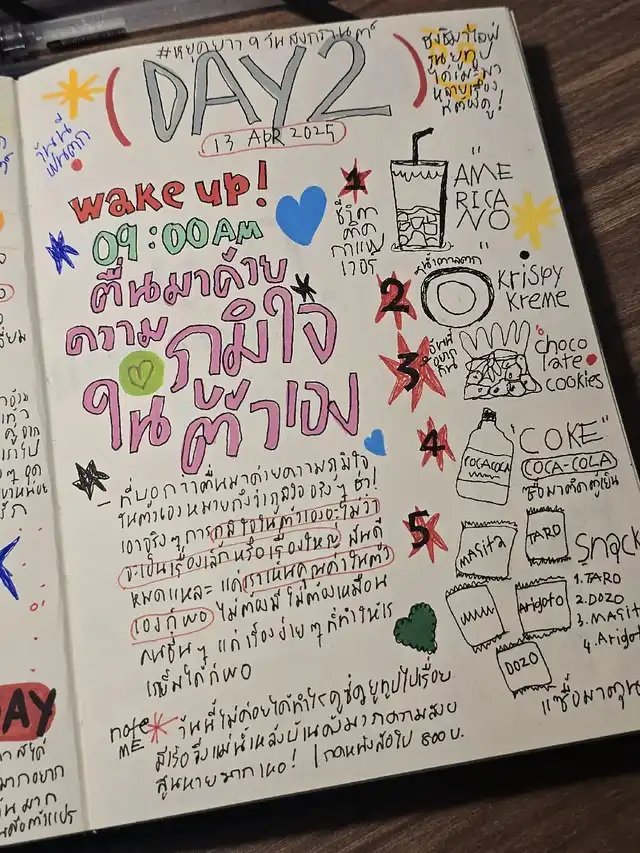 #หยุดยาว 9 วันสงกรานต์
(DAY 2)
13 APR 2025
วันนี้
ฝนตก
wake up!
09:00 AM
ตื่นมาด้วย
ความ
ภูมิใจ
ใน ตัวเอง
- ที่บอกว่าตื่นมาด้วยความภูมิใจ
ในตัวเองหมายถึงว่าภูมิใจจริงๆ ค่า!
เอาจริงๆ การภูมิใจในตัวเองจะไม่ว่า
จะเป็นเรื่องเล็กหรือเรื่องใหญ่ มันดี
หมดแหละ แค่เราเห็นคุณค่าในตัว
เองก็พอ ไม่ต้องมี ไม่ต้องเหมือน
คนอื่นๆ แค่เรื่องง่ายๆ ที่ทำให้เรา
ยิ้มได้ก็พอ
note
ME
วันนี้ไม่ค่อยได้ทำไรดูซี่ดูยูทูปไปเรื่อย
สูนหายมากเหอ! กดหนังสือไป 800 บ.
1
"AME
RICA
NO"
ชีวิต
ติด
กาแฟ
เวอร์
2
Krispy
Kreme
3
"choco
late
cookies
4
"COKE"
COCACOCA
COCA-COLA
ซื้อมาติดตู้เย็น
5
Masita
TARO
Arigoto
DOZO
Snack
1. TARO
2. DOZO
3. Masit
4. Arigot
แวะซื้อมาตุน
DAY